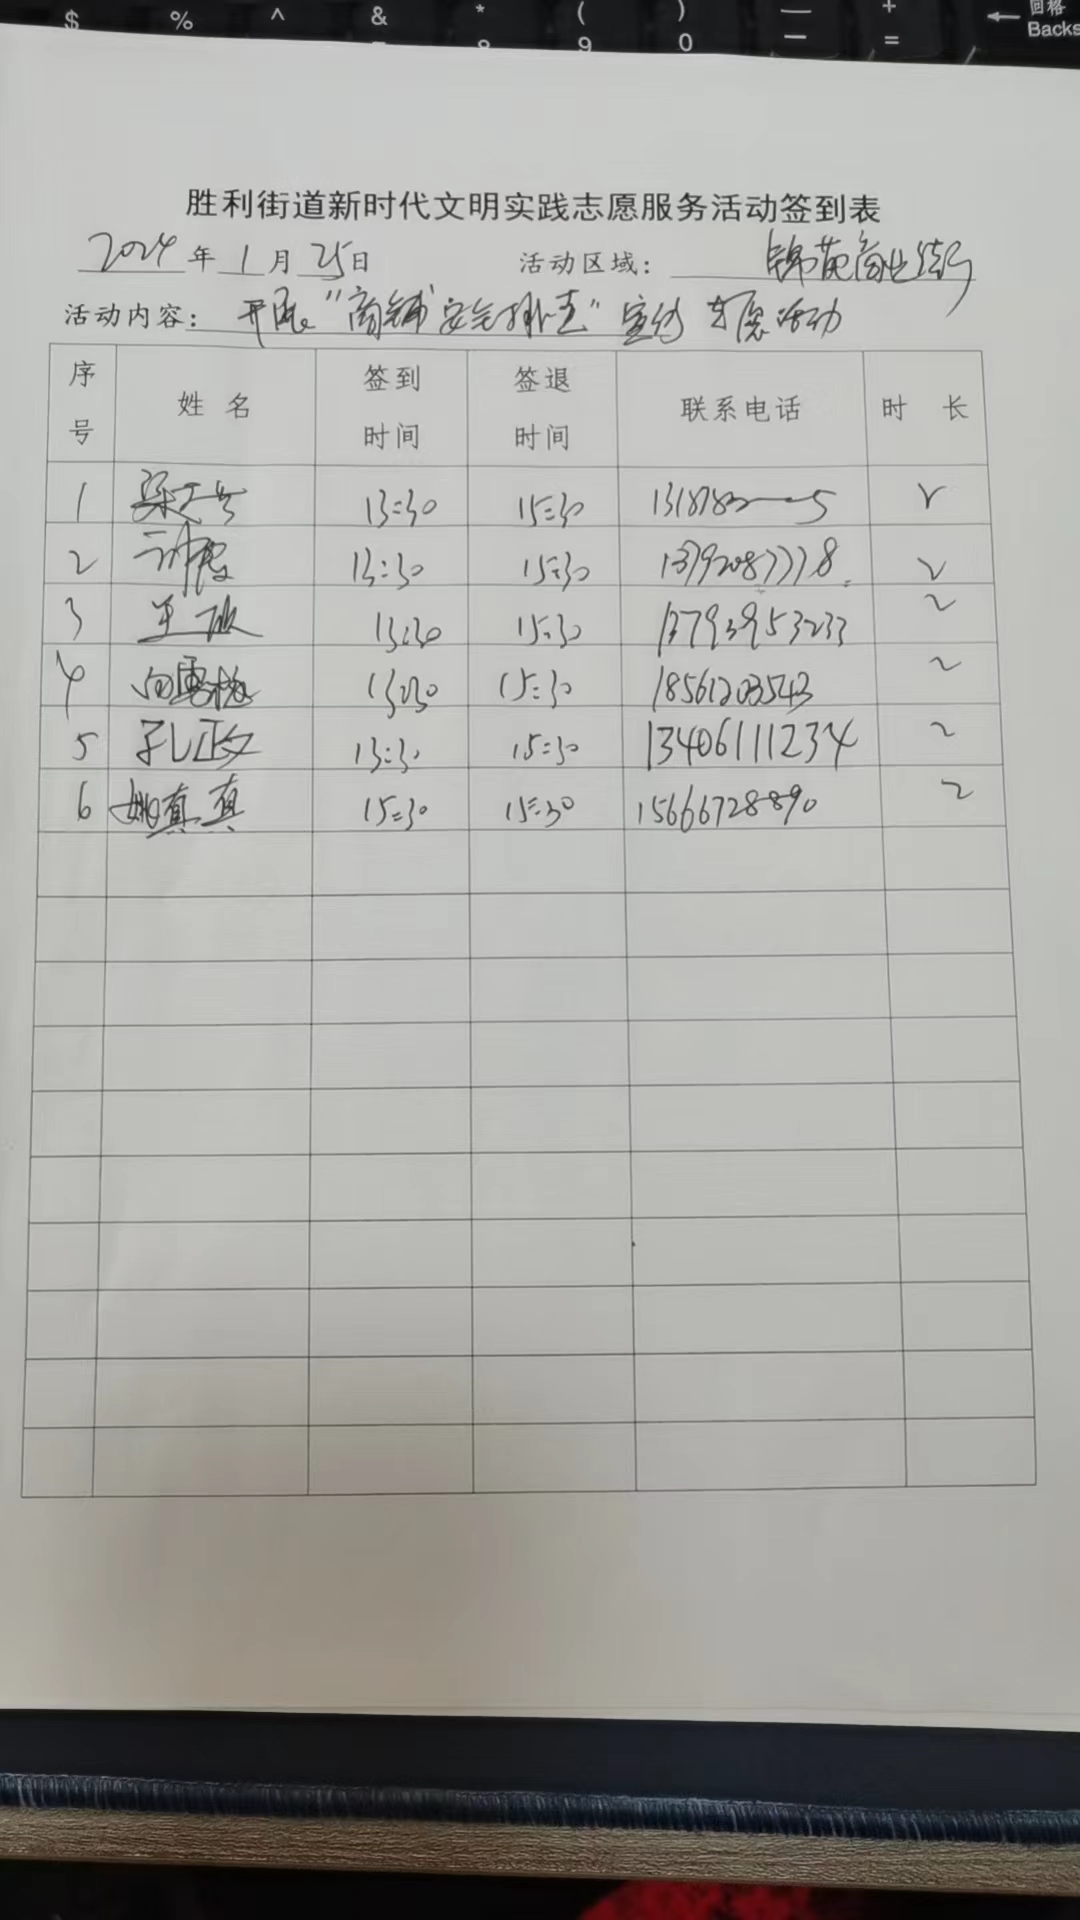 $ % ^ & * ( ) — + ← 回格
9 0 — = Backs
胜利街道新时代文明实践志愿服务活动签到表
2024年1月25日 活动区域：锦苑商业街
活动内容：开展“商铺安全排查”宣传志愿活动
序号 姓名 签到时间 签退时间 联系电话 时长
1 13:30 15:30
2 13:30 15:30 2
3 13:30 15:30 13793953233 2
4 13:30 15:30 18561203543 2
5 孔正文 13:30 15:30 13406111234 2
6 姚真真 15:30 15:30 15666728890 2